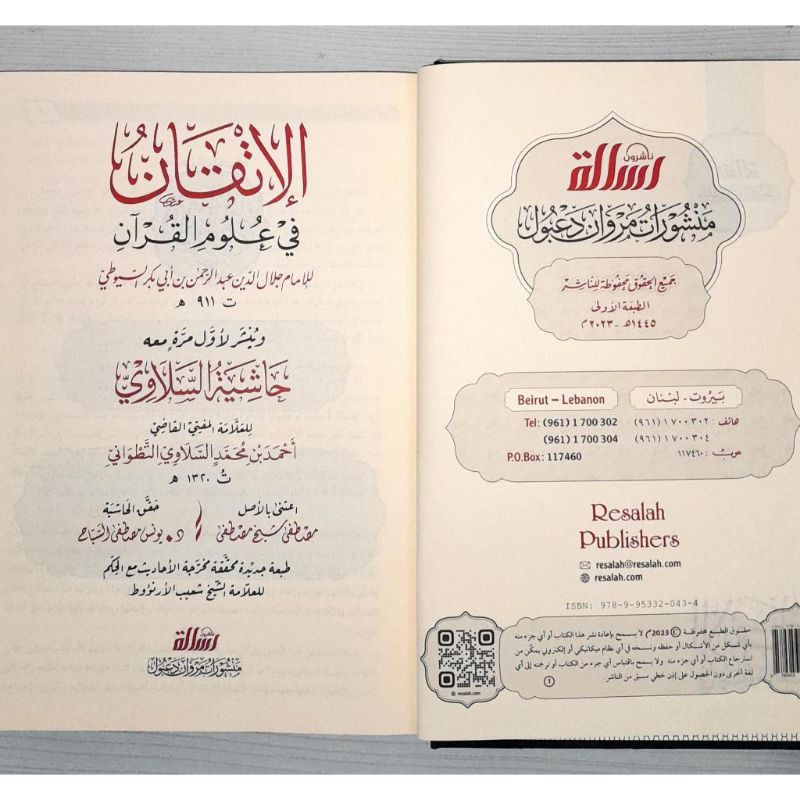 ناشرون
رسالة
منشورات مروان دعبول
جميع الحقوق محفوظة للناشر
الطبعة الأولى
١٤٤٥هـ - ٢٠٢٣م
بيروت - لبنان
هاتف: ٣٠٢ ٧٠٠ ١ (٩٦١)
٣٠٤ ٧٠٠ ١ (٩٦١)
ص.ب: ١١٧٤٦٠
Beirut – Lebanon
Tel: (961) 1 700 302
(961) 1 700 304
P.O.Box: 117460
Resalah
Publishers
resalah@resalah.com
resalah.com
ISBN: 978-9-95332-043-4
حقوق الطبع محفوظة © 2023م لا يسمح بإعادة نشر هذا الكتاب أو أي جزء منه
بأي شكل من الأشكال أو حفظه ونسخه في أي نظام ميكانيكي أو إلكتروني يمكّن من
استرجاع الكتاب أو أي جزء منه. ولا يسمح باقتباس أي جزء من الكتاب أو ترجمته إلى أي
لغة أخرى دون الحصول على إذن خطي مسبق من الناشر.
resalah.com
الإتقان
في علوم القرآن
للإمام جلال الدين عبد الرحمن بن أبي بكر السيوطي
ت ٩١١ هـ
وينشر لأول مرة معه
حاشية السلاوي
للعلامة المفتي القاضي
أحمد بن محمد السلاوي التطواني
ت ١٣٢٠ هـ
اعتنى بالأصل
مصطفى شيخ مصطفى
حقق الحاشية
د. يونس مصطفى السباح
طبعة جديدة محققة مخرجة الأحاديث مع الحكم
للعلامة الشيخ شعيب الأرنؤوط
ناشرون
رسالة
منشورات مروان دعبول